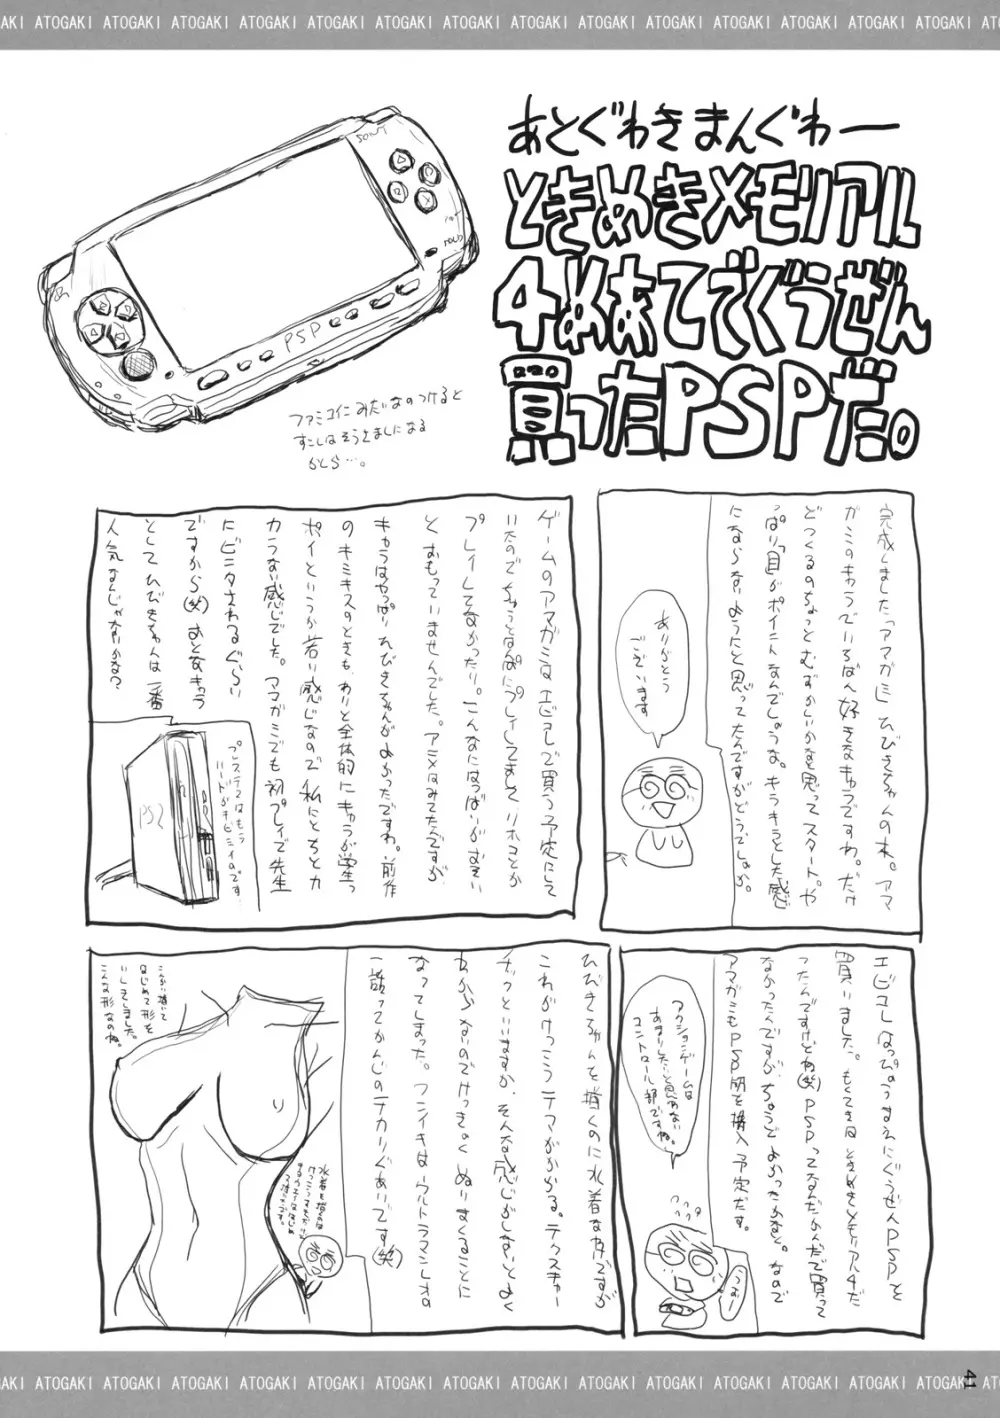 ATOGAKI ATOGAKI ATOGAKI ATOGAKI ATOGAKI ATOGAKI ATOGAKI
あとぐわきまんぐわー
ときめきメモリアル
4めあてでぐうぜん
買ったPSPだ。
SONY
PSP
ファミコイにみたいなのつけると
すこしはそうさしましになる
かしら…。
完成しました「アマガミ」ひびきちゃんの本。アマ
ガミのキャラでいちばん好きなキャラですわ。だけ
どつくるのちょっとむずかしいかなと思ってスタート。や
っぱり「目」がポイントなんでしょうな。キラキラとした感
じにならないようにと思ってたんですがどうでしょうか。
ありがとう
ございます
ゲームのアマガミはエビコレで買う予定にして
いたのでちゅうとはんぱにプレイしてました リホコとか
プレイしてなかったり。こんなにはっぱいがおおい
とおもっていませんでした。アニメはみてたんですが
キャラはやっぱりひびきちゃんがよかったですわ。前作
のキミキスのときも、わりと全体的にキャラが学生っ
ポイというか若い感じなので私にちとチカ
カラない感じでした。アマガミでも初プレイで先生
にビンタされるぐらい
ですから(笑)おとなキャラ
としてひびきちゃんは一番
人気なんじゃないかな?
プレステ2はもう
ハードがキビシイのです
PS2
エビコレはっぴょうまえにぐうぜんPSPを
買いました。もくてきはときめきメモリアル4だ
ったんですけどね(笑)PSPってなんだかんだで買って
なかったんですが、ちょうどよかったかな。なので
アマガミもPSP版を購入予定だす。
アクションゲームは
あまりしたいと思わない
コントロール部ですね。
つおー
ひびきちゃんを描くのに水着なわけですが
これがけっこうテマがかかる。テクスチャー
チックといいますか、そんな感じがしないとよく
わからないのでけっきょくぬりまくることに
なってしまった。フンイキはウルトラマンレオの
一話ってかんじのテカリぐあいです(笑)
こんかい描いて
はじめて形を
いしきしました。
こんな形なのね。
水着を描くのは
41
ATOGAKI ATOGAKI ATOGAKI ATOGAKI ATOGAKI ATOGAKI ATOGAKI